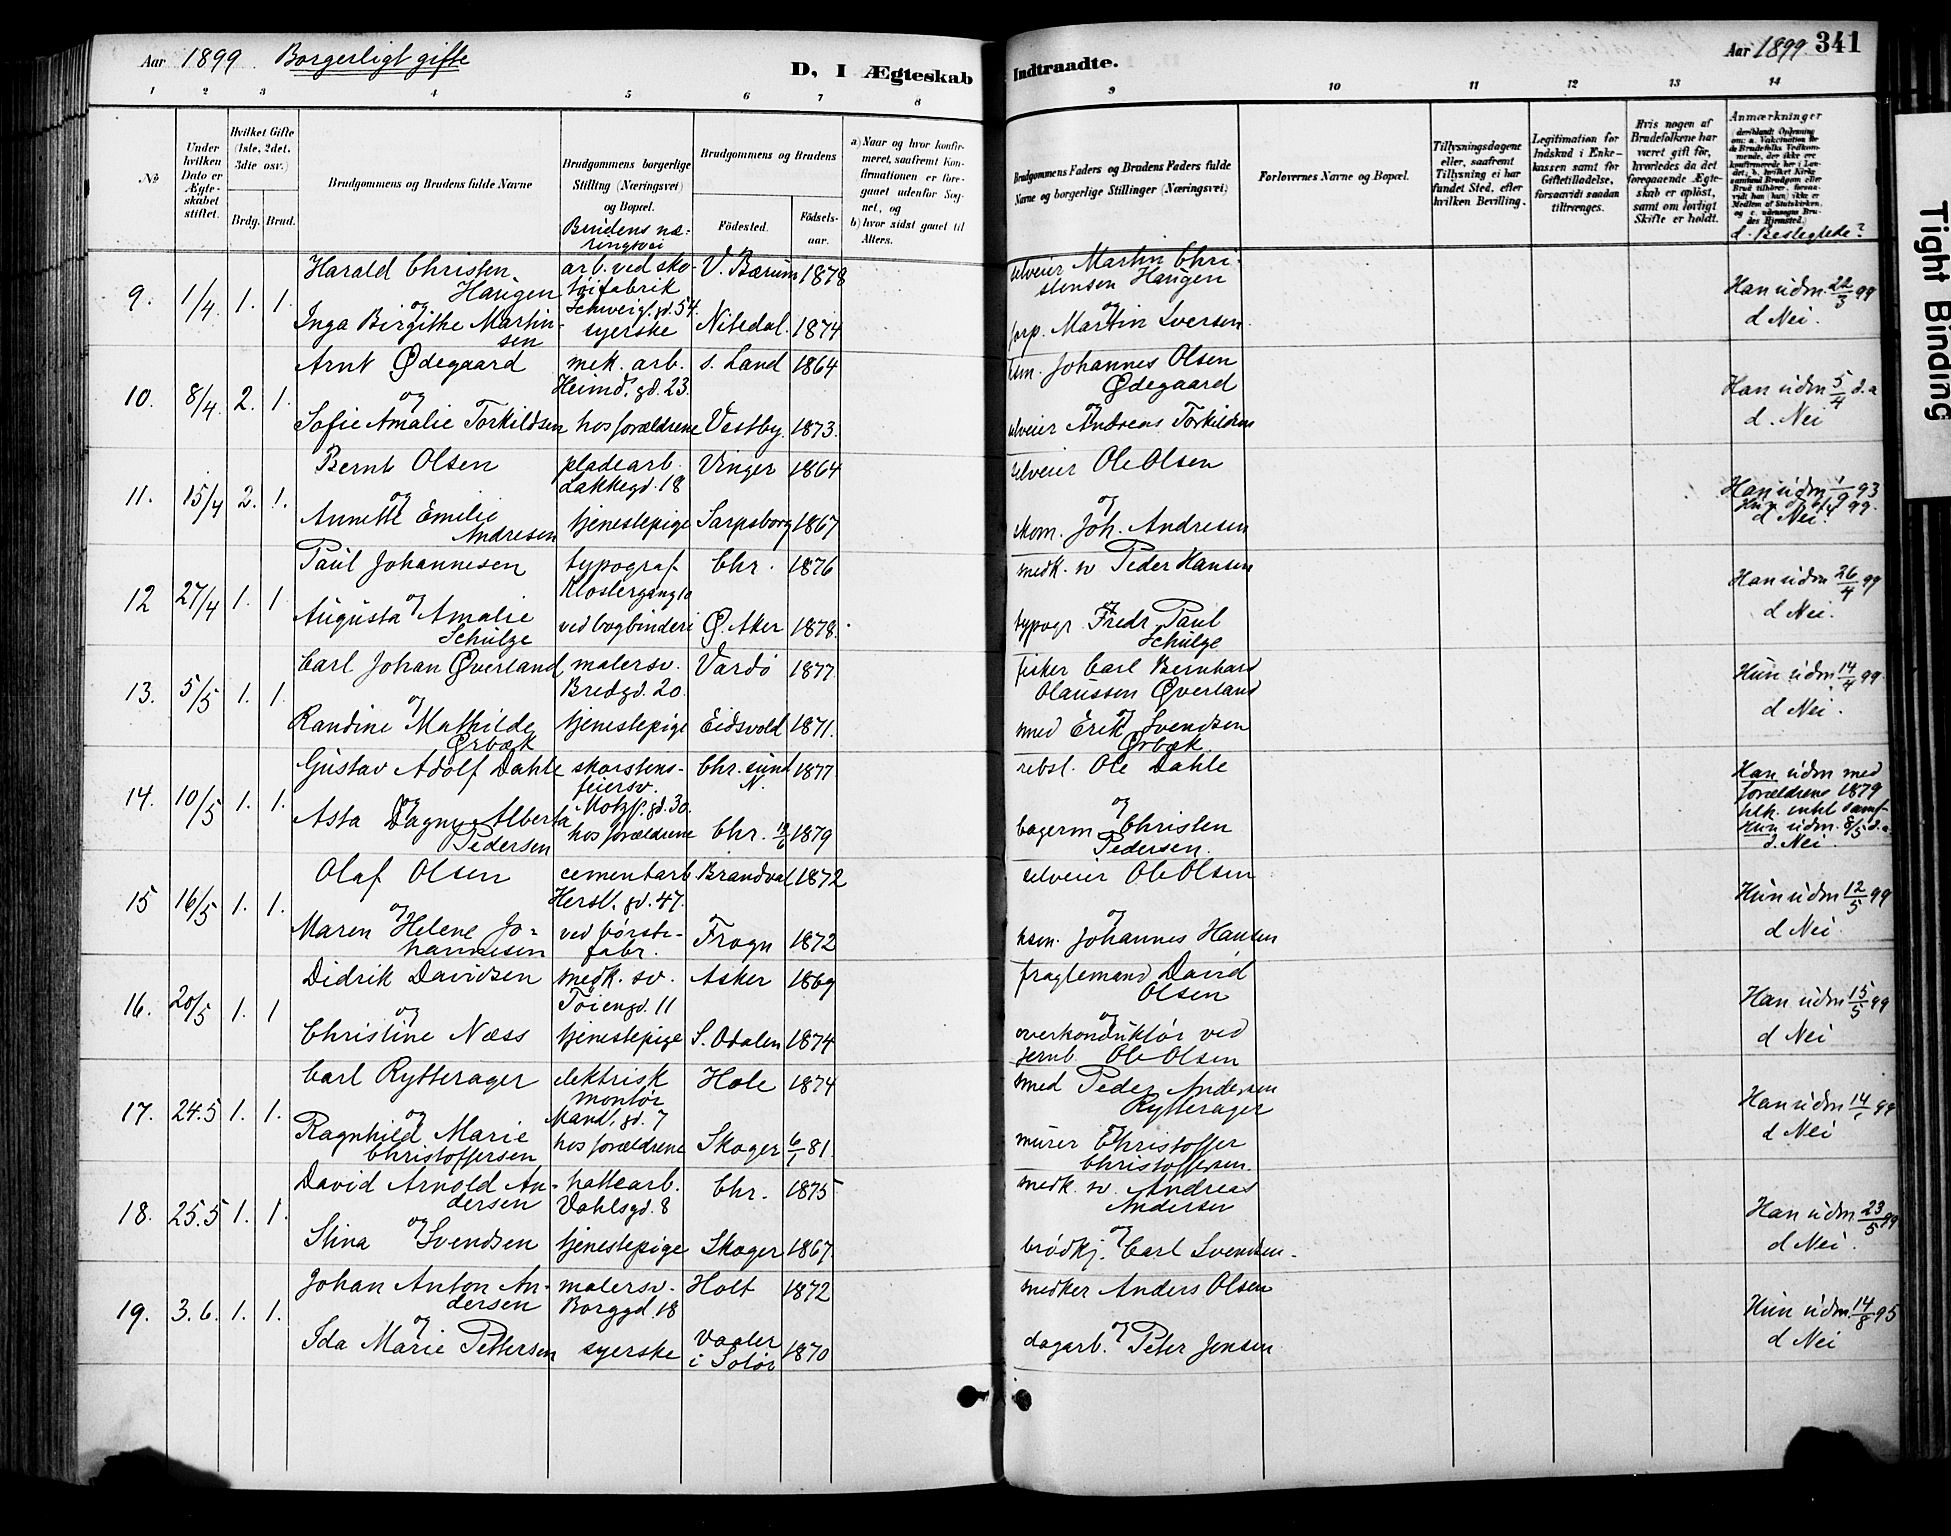 Aar 1899. Borgerligt gifte
D, I Ægteskab
Indtraadte.
Aar 1899. 341
1 2 3 4 5 6 7 8 9 10 11 12 13 14
No
Under hvilken Dato er Ægteskabet stiftet.
Hvilket Gifte (1ste, 2det, 3die osv.)
Brdg. Brud.
Brudgommens og Brudens fulde Navne
Brudgommens borgerlige Stilling (Næringsvei) og Bopæl.
Brudens næringsvei
Brudgommens og Brudens
Fødested. Fødselsaar.
a) Naar og hvor konfirmeret, saafremt Konfirmationen er foregaaet udenfor Sognet, og
b) hvor sidst gaaet til Alters.
Brudgommens Faders og Brudens Faders fulde Navne og borgerlige Stillinger (Næringsvei)
Forlovernes Navne og Bopæl.
Tillysningsdagene eller, saafremt Tillysning ei har fundet Sted, efter hvilken Bevilling.
Legitimation for Indskud i Enkekassen samt for Giftetilladelse, forsaavidt saadan tiltrænges.
Hvis nogen af Brudefolkene har været gift før, hvorledes da det foregaaende Ægteskab er opløst, samt om lovligt Skifte er holdt.
Anmærkninger
d. Beslegtede?
9. 1/4. 1. 1.
Harald Christen Haugen arb. ved skotøifabrik Schweig.gd. 54 V. Bærum 1878
selveier Martin Christensen Haugen
og
Inga Birgithe Martinsen syerske Nitedal. 1874
forp. Martin Iversen
Han udm. 22/3 99
d Nei.
10. 8/4. 2. 1.
Arnt Ødegaard mek. arb. Heimd.gd. 23. s. Land 1864
hsm. Johannes Olsen Ødegaard
og
Sofie Amalie Torkildsen hos forældrene Vestby 1873.
selveier Andreas Torkildsen
Han udm 5/4 d.a
d. Nei
11. 15/4 2. 1.
Bernt Olsen pladearb. Lakkegd. 18 Vinger 1864
selveier Ole Olsen
og
Annette Emilie Andresen tjenestepige Sarpsborg 1867
skom. Joh. Andresen
Han udm 1/9 93
d Nei.
12 27/4 1. 1
Paul Johannesen typograf Klostergang 10 Chr. 1876
snedk. sv Peder Hansen
og
Augusta Amalie Schulze ved bogbinderi Ø. Aker 1878.
typogr. Fredr. Paul Schulze
Han udm 26/4 99
d Nei.
13. 5/5 1. 1.
Carl Johan Øverland malersv. Bredgd. 20. Vardø 1877
fisker Carl Bernhard Olaussen Øverland
og
Randine Mathilde Ørbæk tjenestepige Eidsvold 1871.
smed Erik Svendsen Ørbæk
Hun udm 14/4 99.
d Nei.
14. 10/5 1. 1.
Gustav Adolf Dahle skorstensfeiersv. Motzf.gd. 30. Chr.sund N. 1877
rebsl. Ole Dahle
og
Asta Dagny Alberta Pedersen hos forældrene Chr. 1879
bagerm Christen Pedersen.
Han udm med forældrene 1879
Hun udm. 8/5 d.a.
d. Nei.
15 16/5 1. 1.
Olaf Olsen cementarb Hersl.gd. 47. Brandval 1872
selveier Ole Olsen
og
Maren Helene Johannesen ved børstefabr. Frogn 1872
hsm. Johannes Hansen
Hun udm 12/5 99
d Nei.
16. 20/5 1. 1
Didrik Davidsen snedk. sv. Tøiengd. 11 Asker 1869
fragtemand David Olsen
og
Christine Næss tjenestepige S. Odalen 1874
overkonduktør ved jernb. Ole Olsen
Han udm 15/5 99
d Nei
17. 24.5 1. 1.
Carl Rytterager elektrisk montør Mand.gd. 7 Hole 1874
smed Peder Andersen Rytterager
og
Ragnhild Marie Christoffersen hos forældrene Skoger 6/1 81.
murer Christoffer Christoffersen.
Han udm 14/ 99
d Nei
18. 25.5 1. 1.
David Arnold Andersen hattearb. Vahlsgd. 8 Chr. 1875
snedk. sv. Andreas Andersen
og
Stina Svendsen tjenestepige Skoger 1867
brødkj. Carl Svendsen.
Han udm 23/5 99
d Nei.
19. 3.6. 1. 1.
Johan Anton Andersen malersv. Borggd. 18 Holt 1872
snedker Anders Olsen
og
Ida Marie Pettersen syerske Vaaler i Solør 1870
dagarb. Peter Jensen
Hun udm. 14/8 95
d Nei
Tight Binding